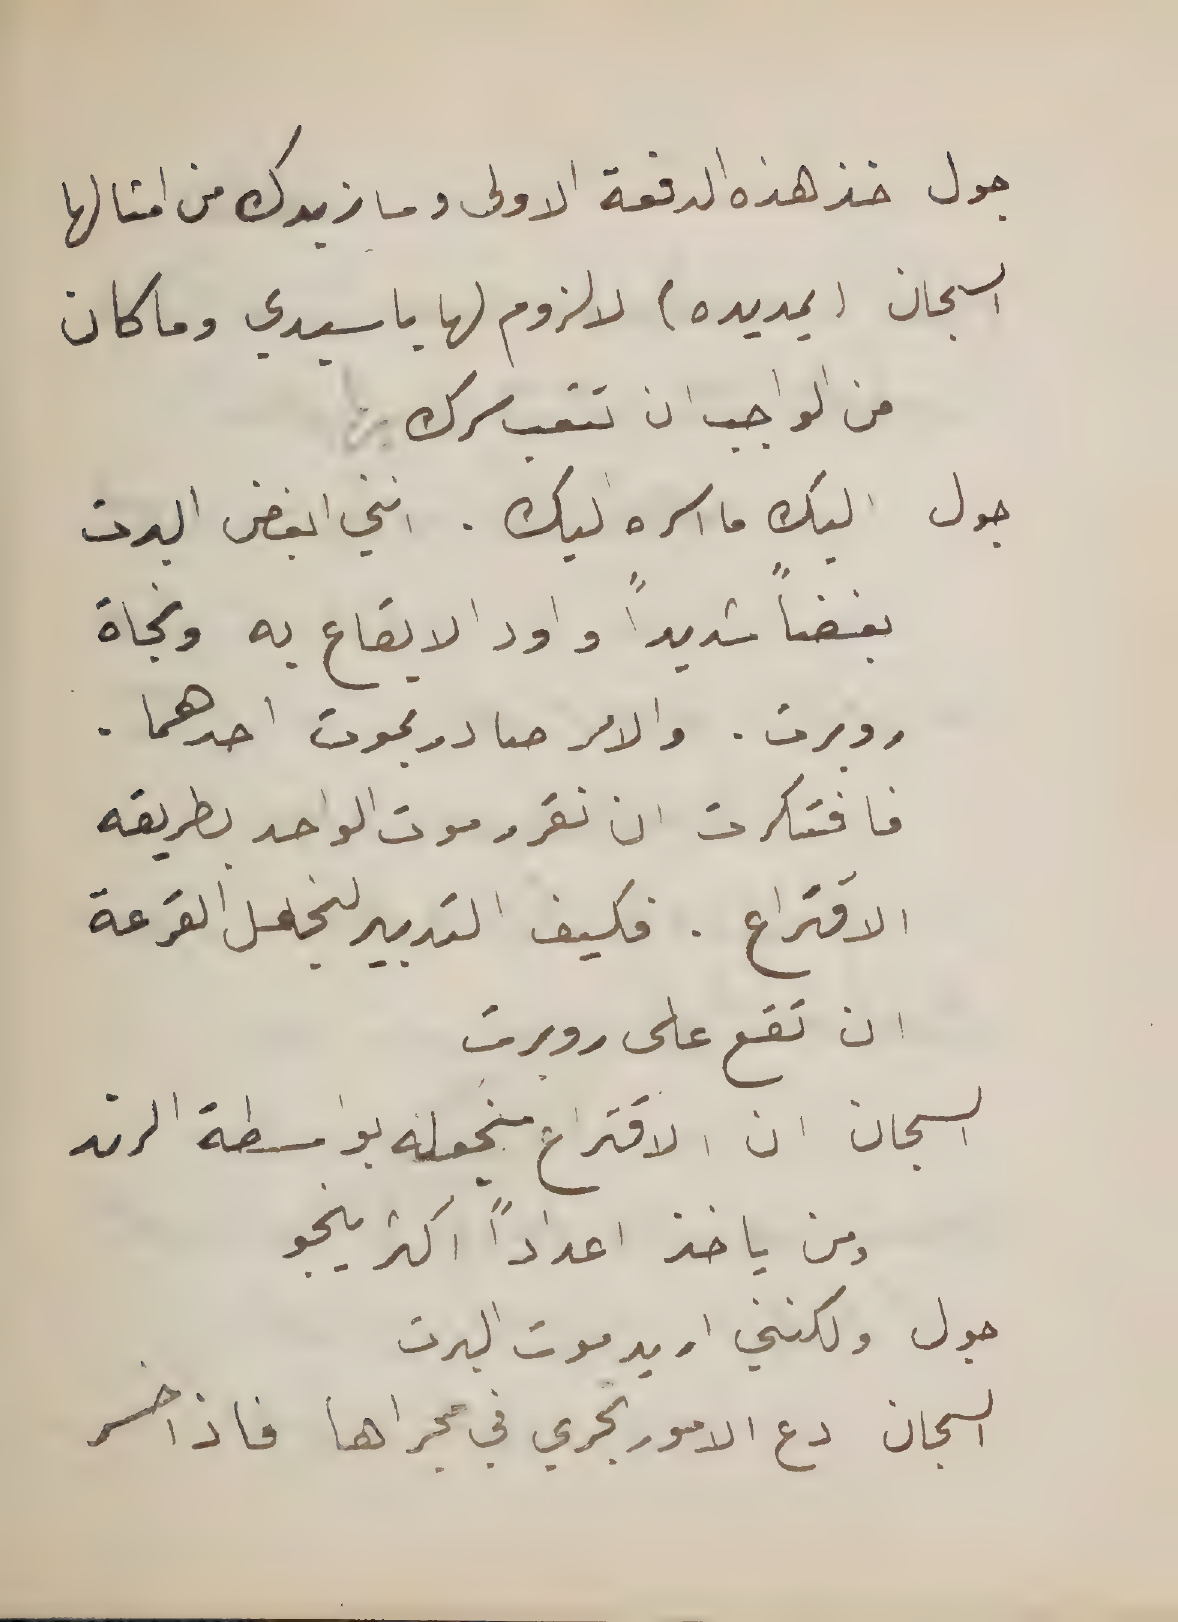 جول خذ هذه الدفعة الاولى وسازيدك من امثالها
السجان (يمد يده) لا لزوم لها يا سيدي وما كان
من الواجب ان تتعب سرك
جول اليك ما اسره اليك . انني ابغض البرت
بغضاً شديداً واود الايقاع به ونجاة
روبرت . والامر صادر بموت احدهما .
فافتكرت ان نقرر موت الواحد بطريقه
الاقتراع . فكيف التدبير لنجعل القرعة
ان تقع على روبرت
السجان ان الاقتراع سنجعله بواسطة النرد
ومن ياخذ اعداداً اكثر ينجو
جول ولكنني اريد موت البرت
السجان دع الامور تجري في مجراها فاذا خسر